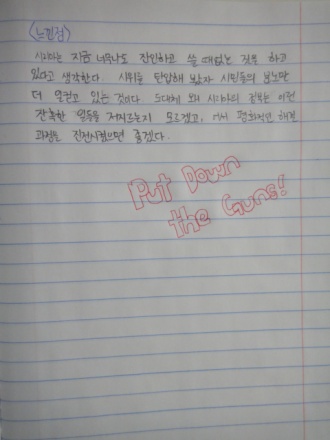 <느낀점>
시리아는 지금 너무나도 잔인하고 쓸 때없는 짓을 하고
있다고 생각한다. 시위를 탄압해 봤자 시민들의 분노만
더 일으킬 있는 것이다. 도대체 왜 시리아의 정부는 이런
잔혹한 일들을 저지르는지 모르겠고, 어서 평화적인 해결
과정을 진전시켰으면 좋겠다.
Put Down
the Guns!